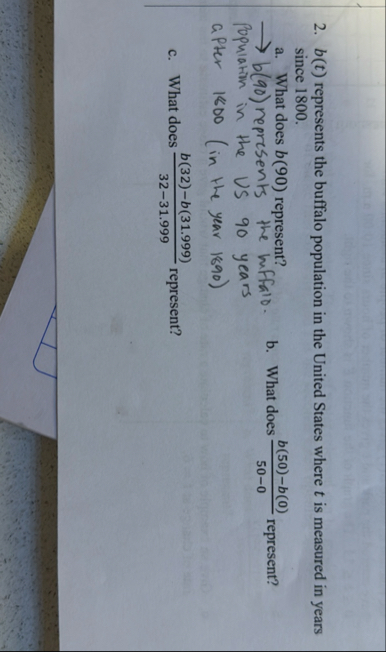 2. b(t) represents the buffalo population in the United States where t is measured in years
since 1800.
a. What does b(90) represent?
→ b(90) represents the buffalo
population in the US 90 years
after 1800 (in the year 1890)
b. What does \frac{b(50)-b(0)}{50-0} represent?
c. What does \frac{b(32)-b(31.999)}{32-31.999} represent?